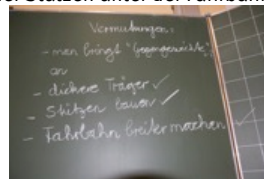 Vermutungen:
- man bringt "Gegengewichte"
an
- dickere Träger ✓
- Stützen bauen ✓
- Fahrbahn breiter machen ✓